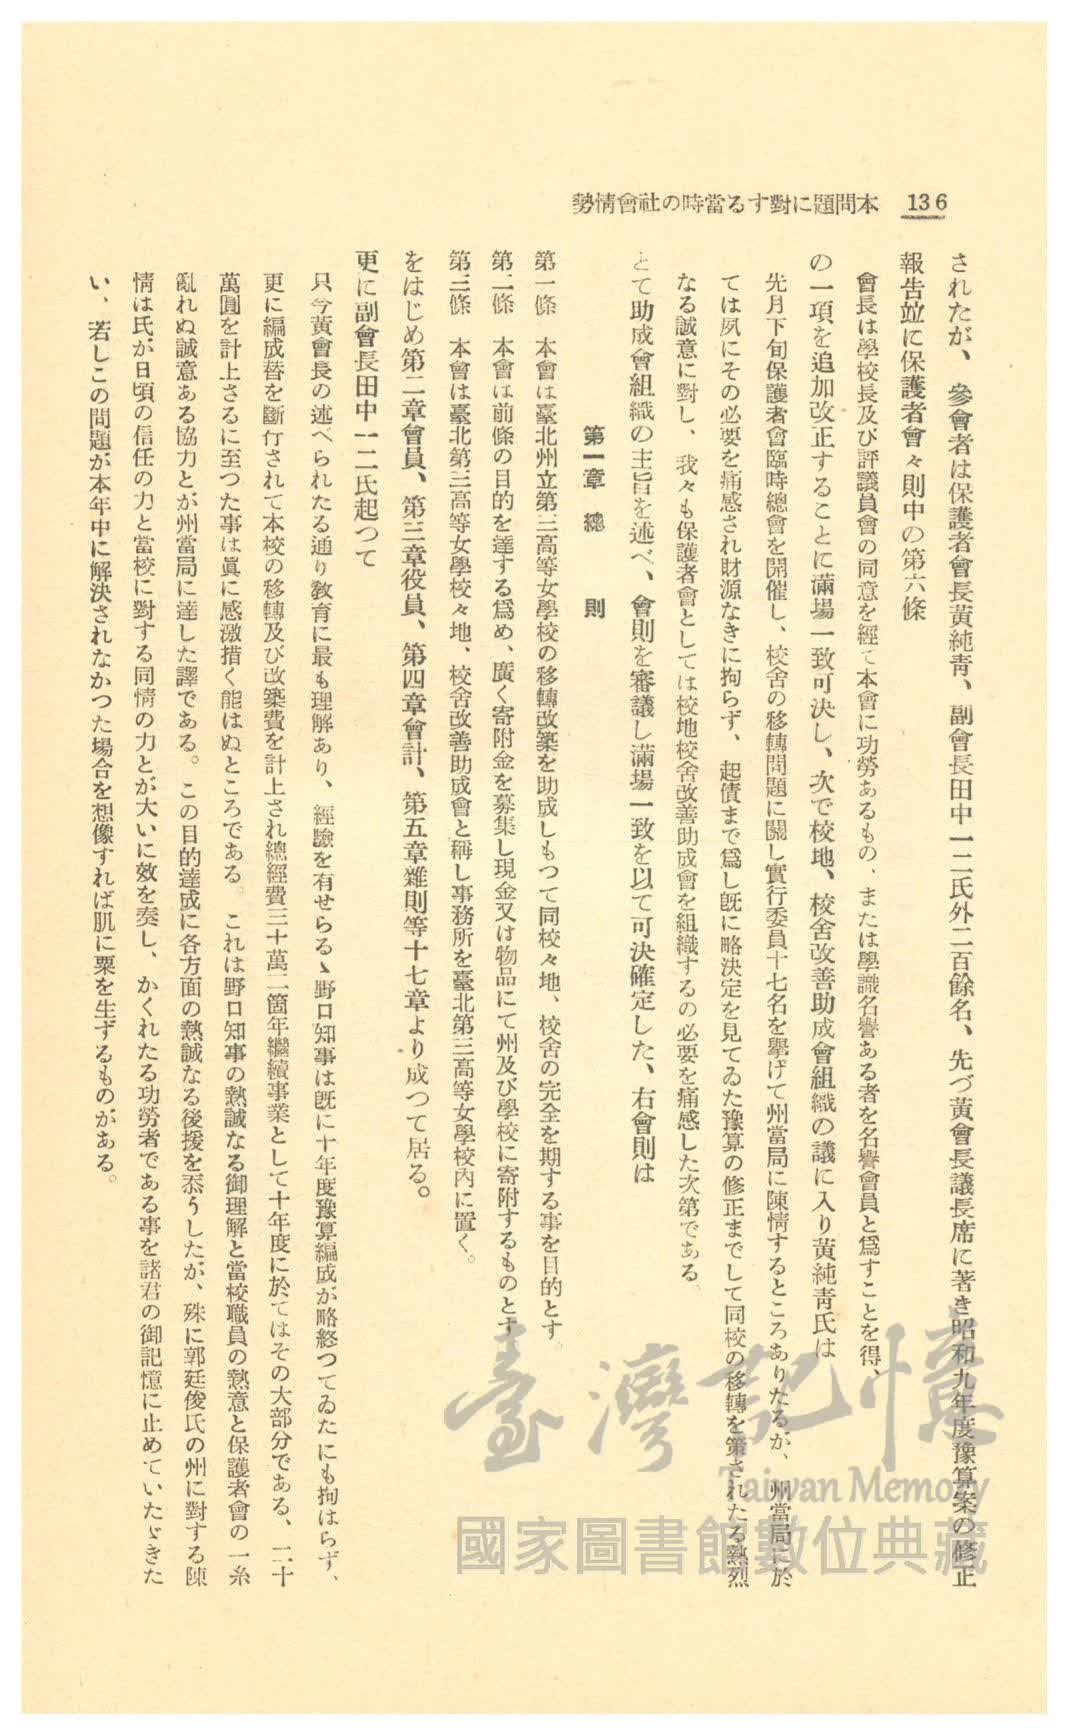 136 本問題に對する當時の社會情勢
されたが、參會者は保護者會長黃純靑、副會長田中一二氏外二百餘名、先づ黃會長議長席に著き昭和九年度豫算案の修正
報告竝に保護者會々則中の第六條
會長は學校長及び評議員會の同意を經て本會に功勞あるもの、または學識名譽ある者を名譽會員と爲すことを得、
の一項を追加改正することに滿場一致可決し、次で校地、校舍改善助成會組織の議に入り黃純靑氏は
先月下旬保護者會臨時總會を開催し、校舍の移轉問題に關し實行委員十七名を擧げて州當局に陳情するところありたるが、州當局に於
ては夙にその必要を痛感され財源なきに拘らず、起債まで爲し既に略決定を見てゐた豫算の修正までして同校の移轉を策されたる熱烈
なる誠意に對し、我々も保護者會としては校地校舍改善助成會を組織するの必要を痛感した次第である。
とて助成會組織の主旨を述べ、會則を審議し滿場一致を以て可決確定した、右會則は
第一章 總則
第一條 本會は臺北州立第三高等女學校の移轉改築を助成しもつて同校々地、校舍の完全を期する事を目的とす。
第二條 本會は前條の目的を達する爲め、廣く寄附金を募集し現金又は物品にて州及び學校に寄附するものとす
第三條 本會は臺北第三高等女學校々地、校舍改善助成會と稱し事務所を臺北第三高等女學校內に置く。
をはじめ第二章會員、第三章役員、第四章會計、第五章雜則等十七章より成つて居る。
更に副會長田中一二氏起つて
只今黃會長の述べられたる通り敎育に最も理解あり、經驗を有せらるゝ野口知事は既に十年度豫算編成が略終つてゐたにも拘はらず、
更に編成替を斷行されて本校の移轉及び改築費を計上され總經費三十萬二箇年繼續事業として十年度に於てはその大部分である、二十
萬圓を計上さるに至つた事は眞に感激措く能はぬところである。これは野口知事の熱誠なる御理解と當校職員の熱意と保護者會の一糸
亂れぬ誠意ある協力とが州當局に達した譯である。この目的達成に各方面の熱誠なる後援を忝うしたが、殊に郭廷俊氏の州に對する陳
情は氏が日頃の信任の力と當校に對する同情の力とが大いに效を奏し、かくれたる功勞者である事を諸君の御記憶に止めていたゞきた
い、若しこの問題が本年中に解決されなかつた場合を想像すれば肌に粟を生ずるものがある。
臺灣記憶
Taiwan Memory
國家圖書館數位典藏